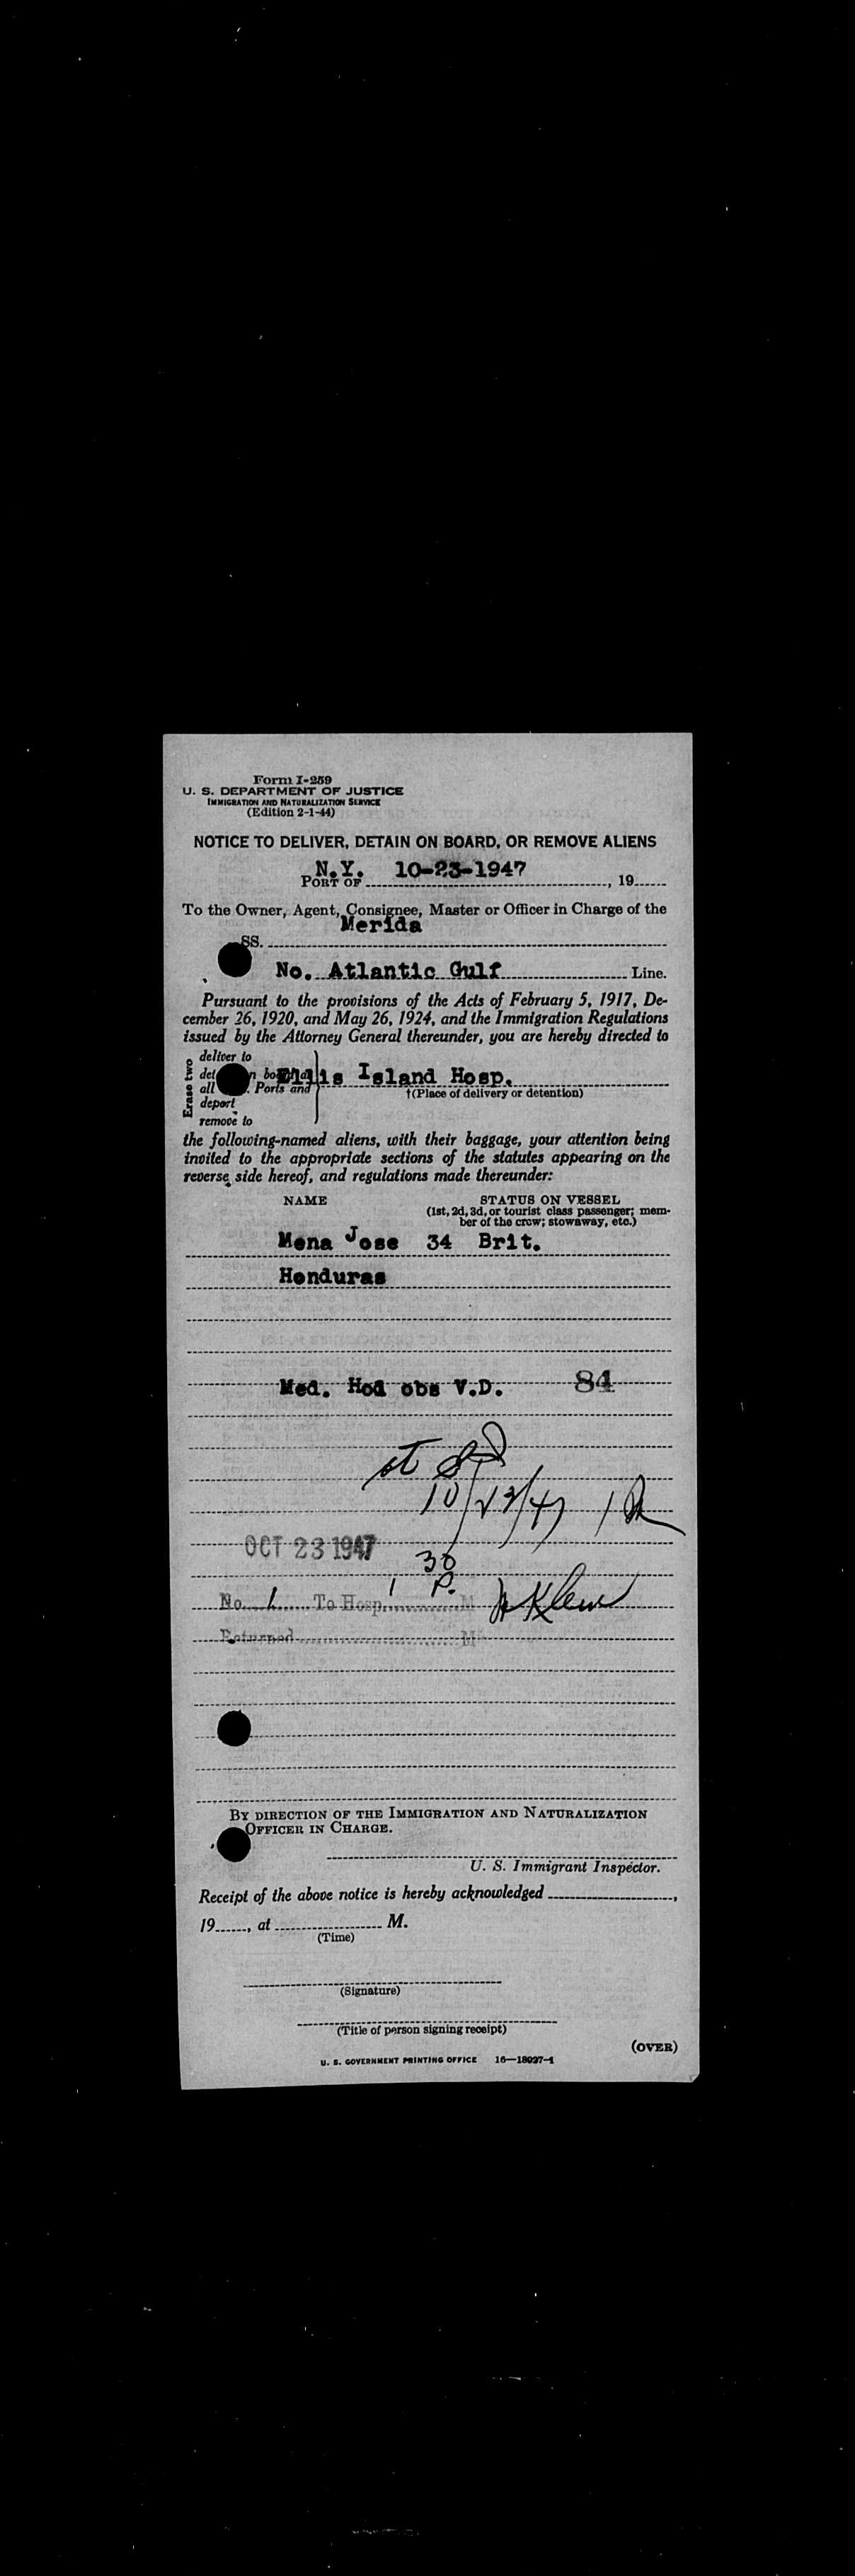 Form I-259
U. S. DEPARTMENT OF JUSTICE
IMMIGRATION AND NATURALIZATION SERVICE
(Edition 2-1-44)
NOTICE TO DELIVER, DETAIN ON BOARD, OR REMOVE ALIENS
N.Y. 10-23-1947
PORT OF , 19
To the Owner, Agent, Consignee, Master or Officer in Charge of the
Merida
SS.
No. Atlantic Gulf Line.
Pursuant to the provisions of the Acts of February 5, 1917, De-
cember 26, 1920, and May 26, 1924, and the Immigration Regulations
issued by the Attorney General thereunder, you are hereby directed to
Erase two
deliver to
Ellis Island Hosp.
all Ports and
†(Place of delivery or detention)
deport
remove to
the following-named aliens, with their baggage, your attention being
invited to the appropriate sections of the statutes appearing on the
reverse side hereof, and regulations made thereunder:
NAME STATUS ON VESSEL
(1st, 2d, 3d, or tourist class passenger; mem-
ber of the crew; stowaway, etc.)
Mena Jose 34 Brit.
Honduras
Med. Hod obs V.D. 84
10/23/47
OCT 23 1947
30
1 P.
No. 1 To Hosp. M Klein
Returned M
BY DIRECTION OF THE IMMIGRATION AND NATURALIZATION
OFFICER IN CHARGE.
U. S. Immigrant Inspector.
Receipt of the above notice is hereby acknowledged ,
19 , at M.
(Time)
(Signature)
(Title of person signing receipt)
(OVER)
U. S. GOVERNMENT PRINTING OFFICE 16—18027-1